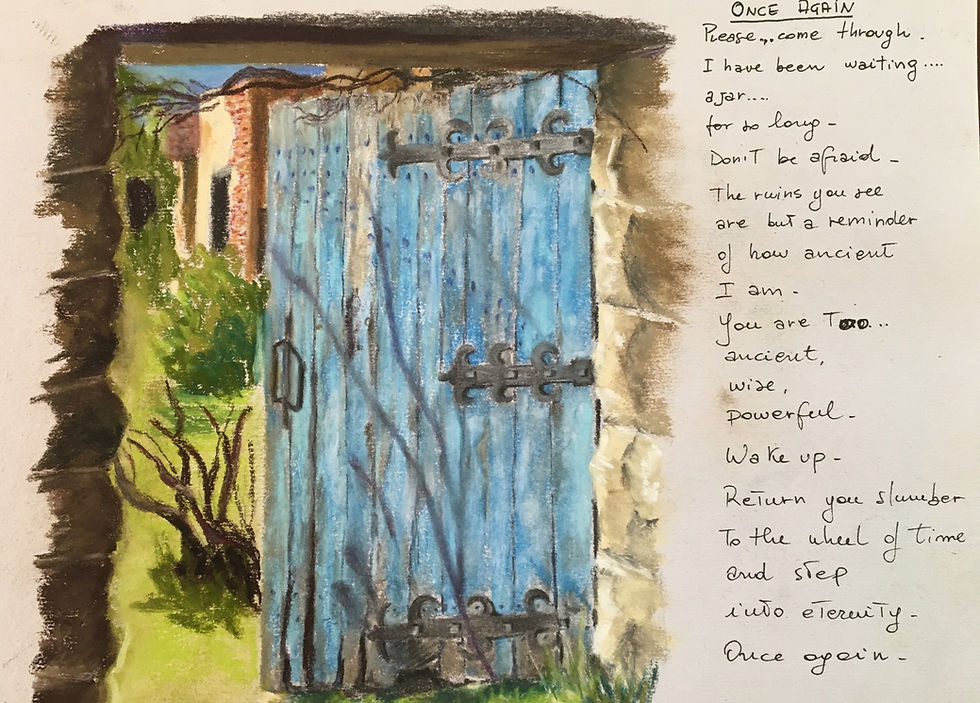 ONCE AGAIN
Please... come through.
I have been waiting....
ajar....
for so long -
Don't be afraid -
The ruins you see
are but a reminder
of how ancient
I am -
You are Too...
ancient,
wise,
powerful -
Wake up -
Return you slumber
To the wheel of time
and step
into eternity -
Once again -